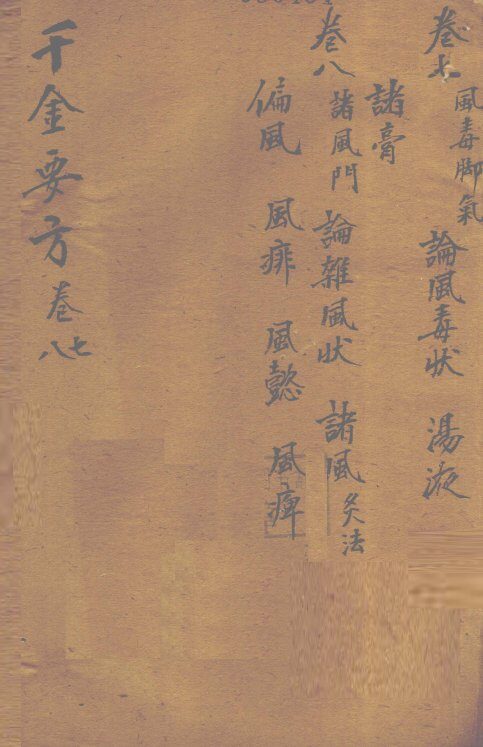 卷七 風毒脚氣 論風毒狀 湯液
諸膏
卷八 諸風門 論雜風狀 諸風 灸法
偏風 風痱 風懿 風痺
千金要方 卷七八